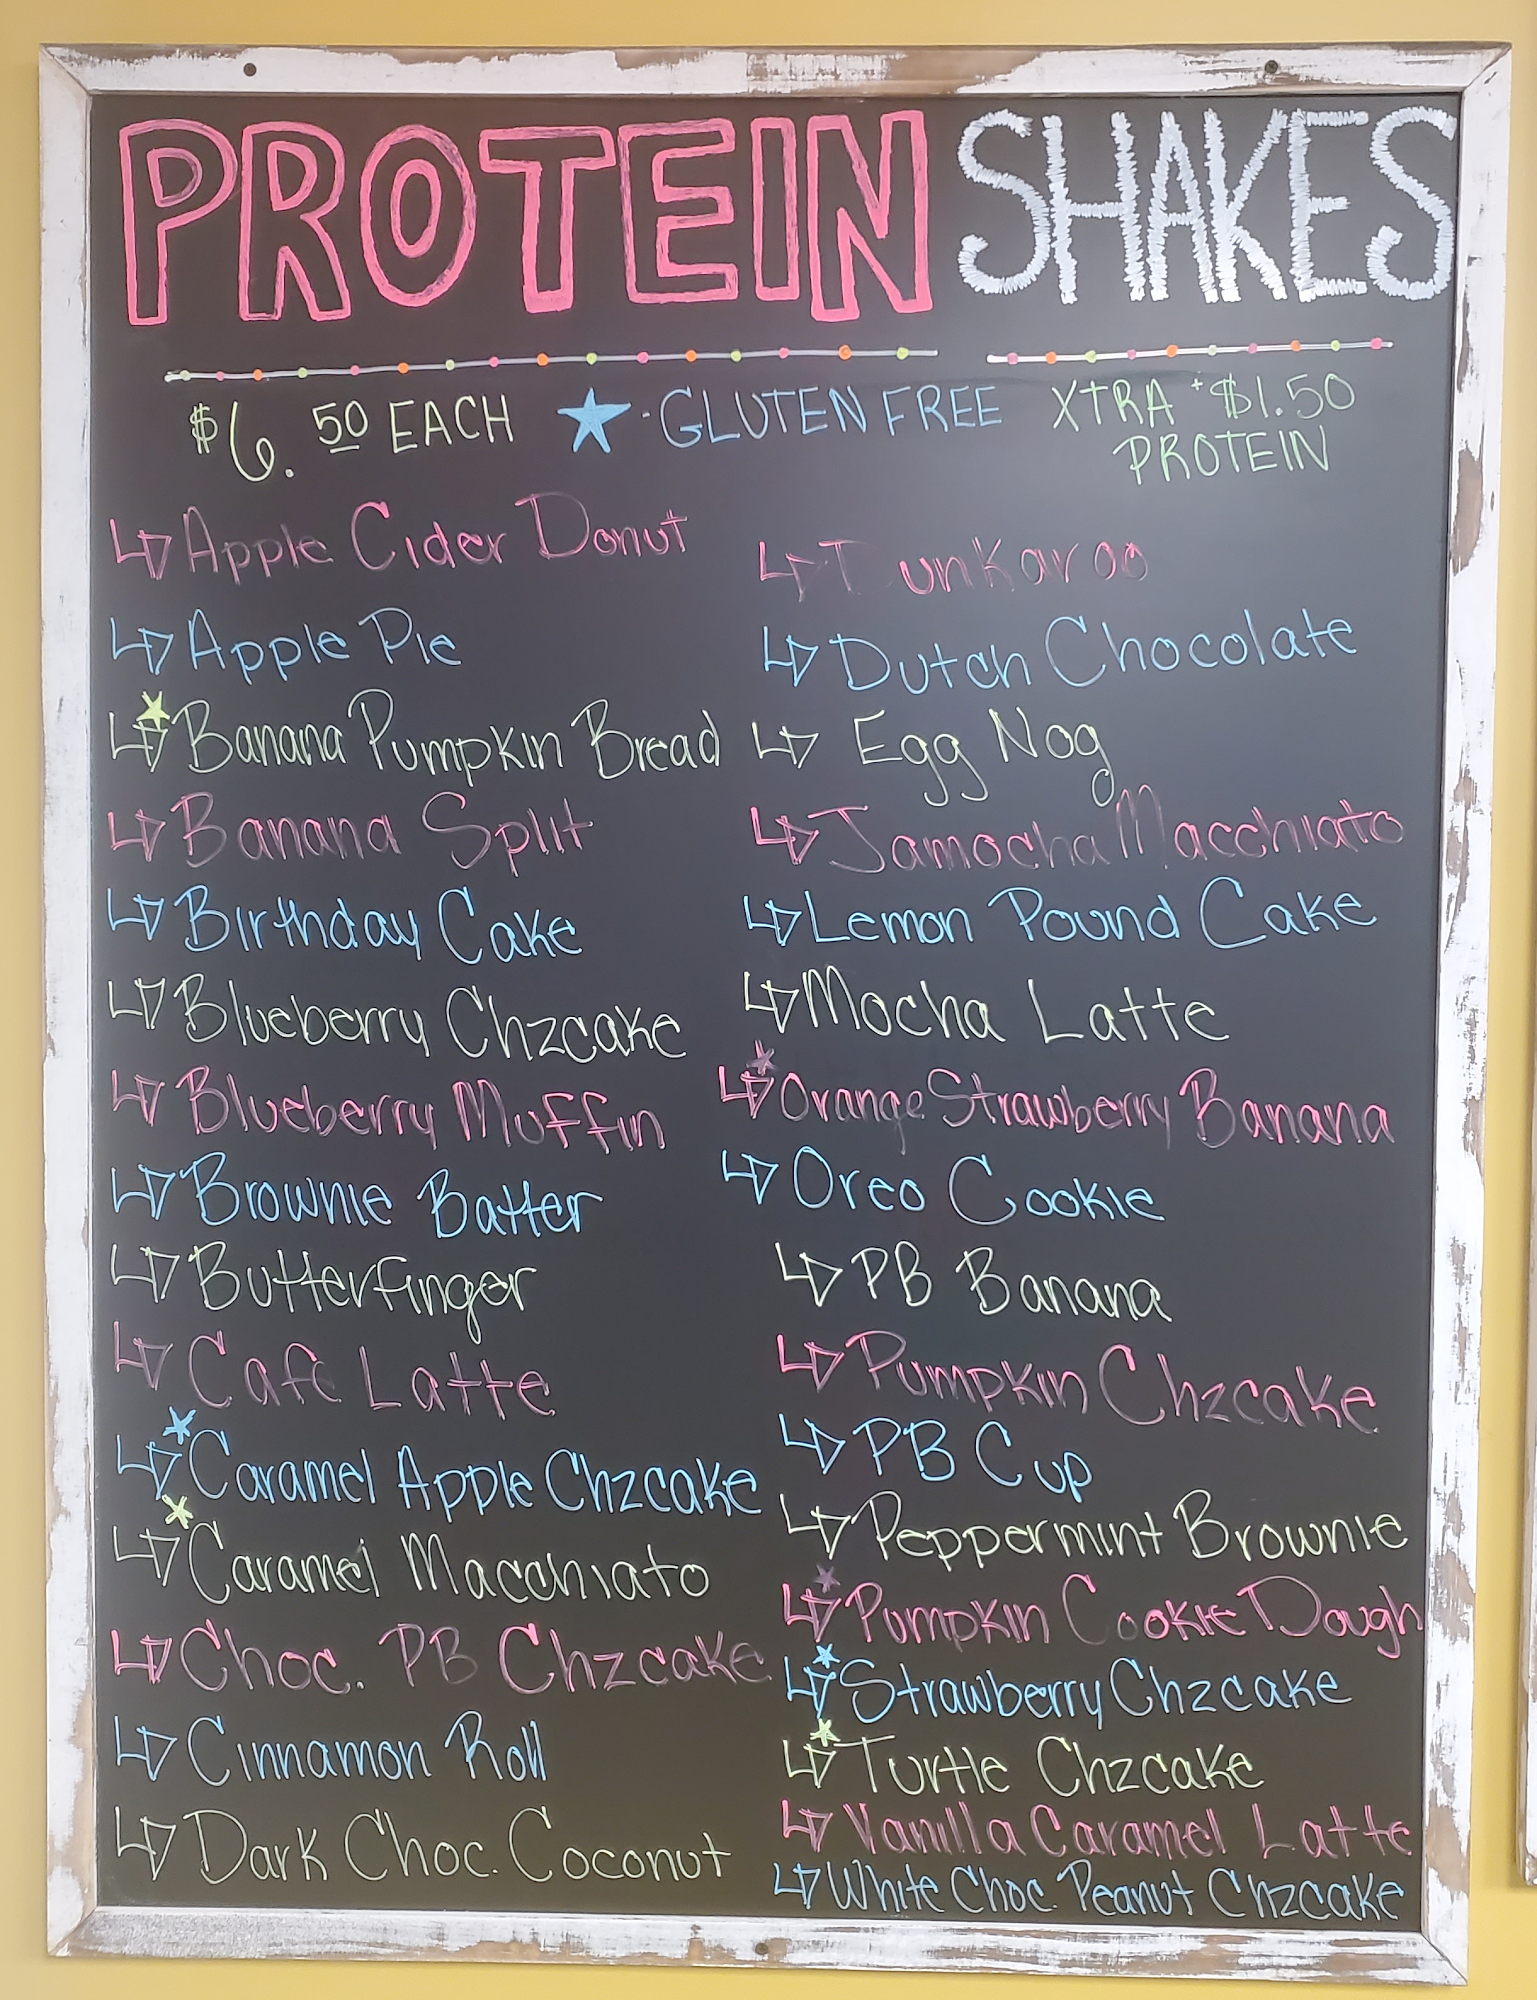 PROTEIN SHAKES
$6.50 EACH ★-GLUTEN FREE XTRA +$1.50
PROTEIN
Apple Cider Donut
Apple Pie
Banana Pumpkin Bread
Banana Split
Birthday Cake
Blueberry Chzcake
Blueberry Muffin
Brownie Batter
Butterfinger
Cafe Latte
Caramel Apple Chzcake
Caramel Macchiato
Choc. PB Chzcake
Cinnamon Roll
Dark Choc. Coconut
Dutch Chocolate
Egg Nog
Jamocha Macchiato
Lemon Pound Cake
Mocha Latte
Orange Strawberry Banana
Oreo Cookie
PB Banana
Pumpkin Chzcake
PB Cup
Peppermint Brownie
Pumpkin Cookie Dough
Strawberry Chzcake
Turtle Chzcake
Vanilla Caramel Latte
White Choc. Peanut Chzcake